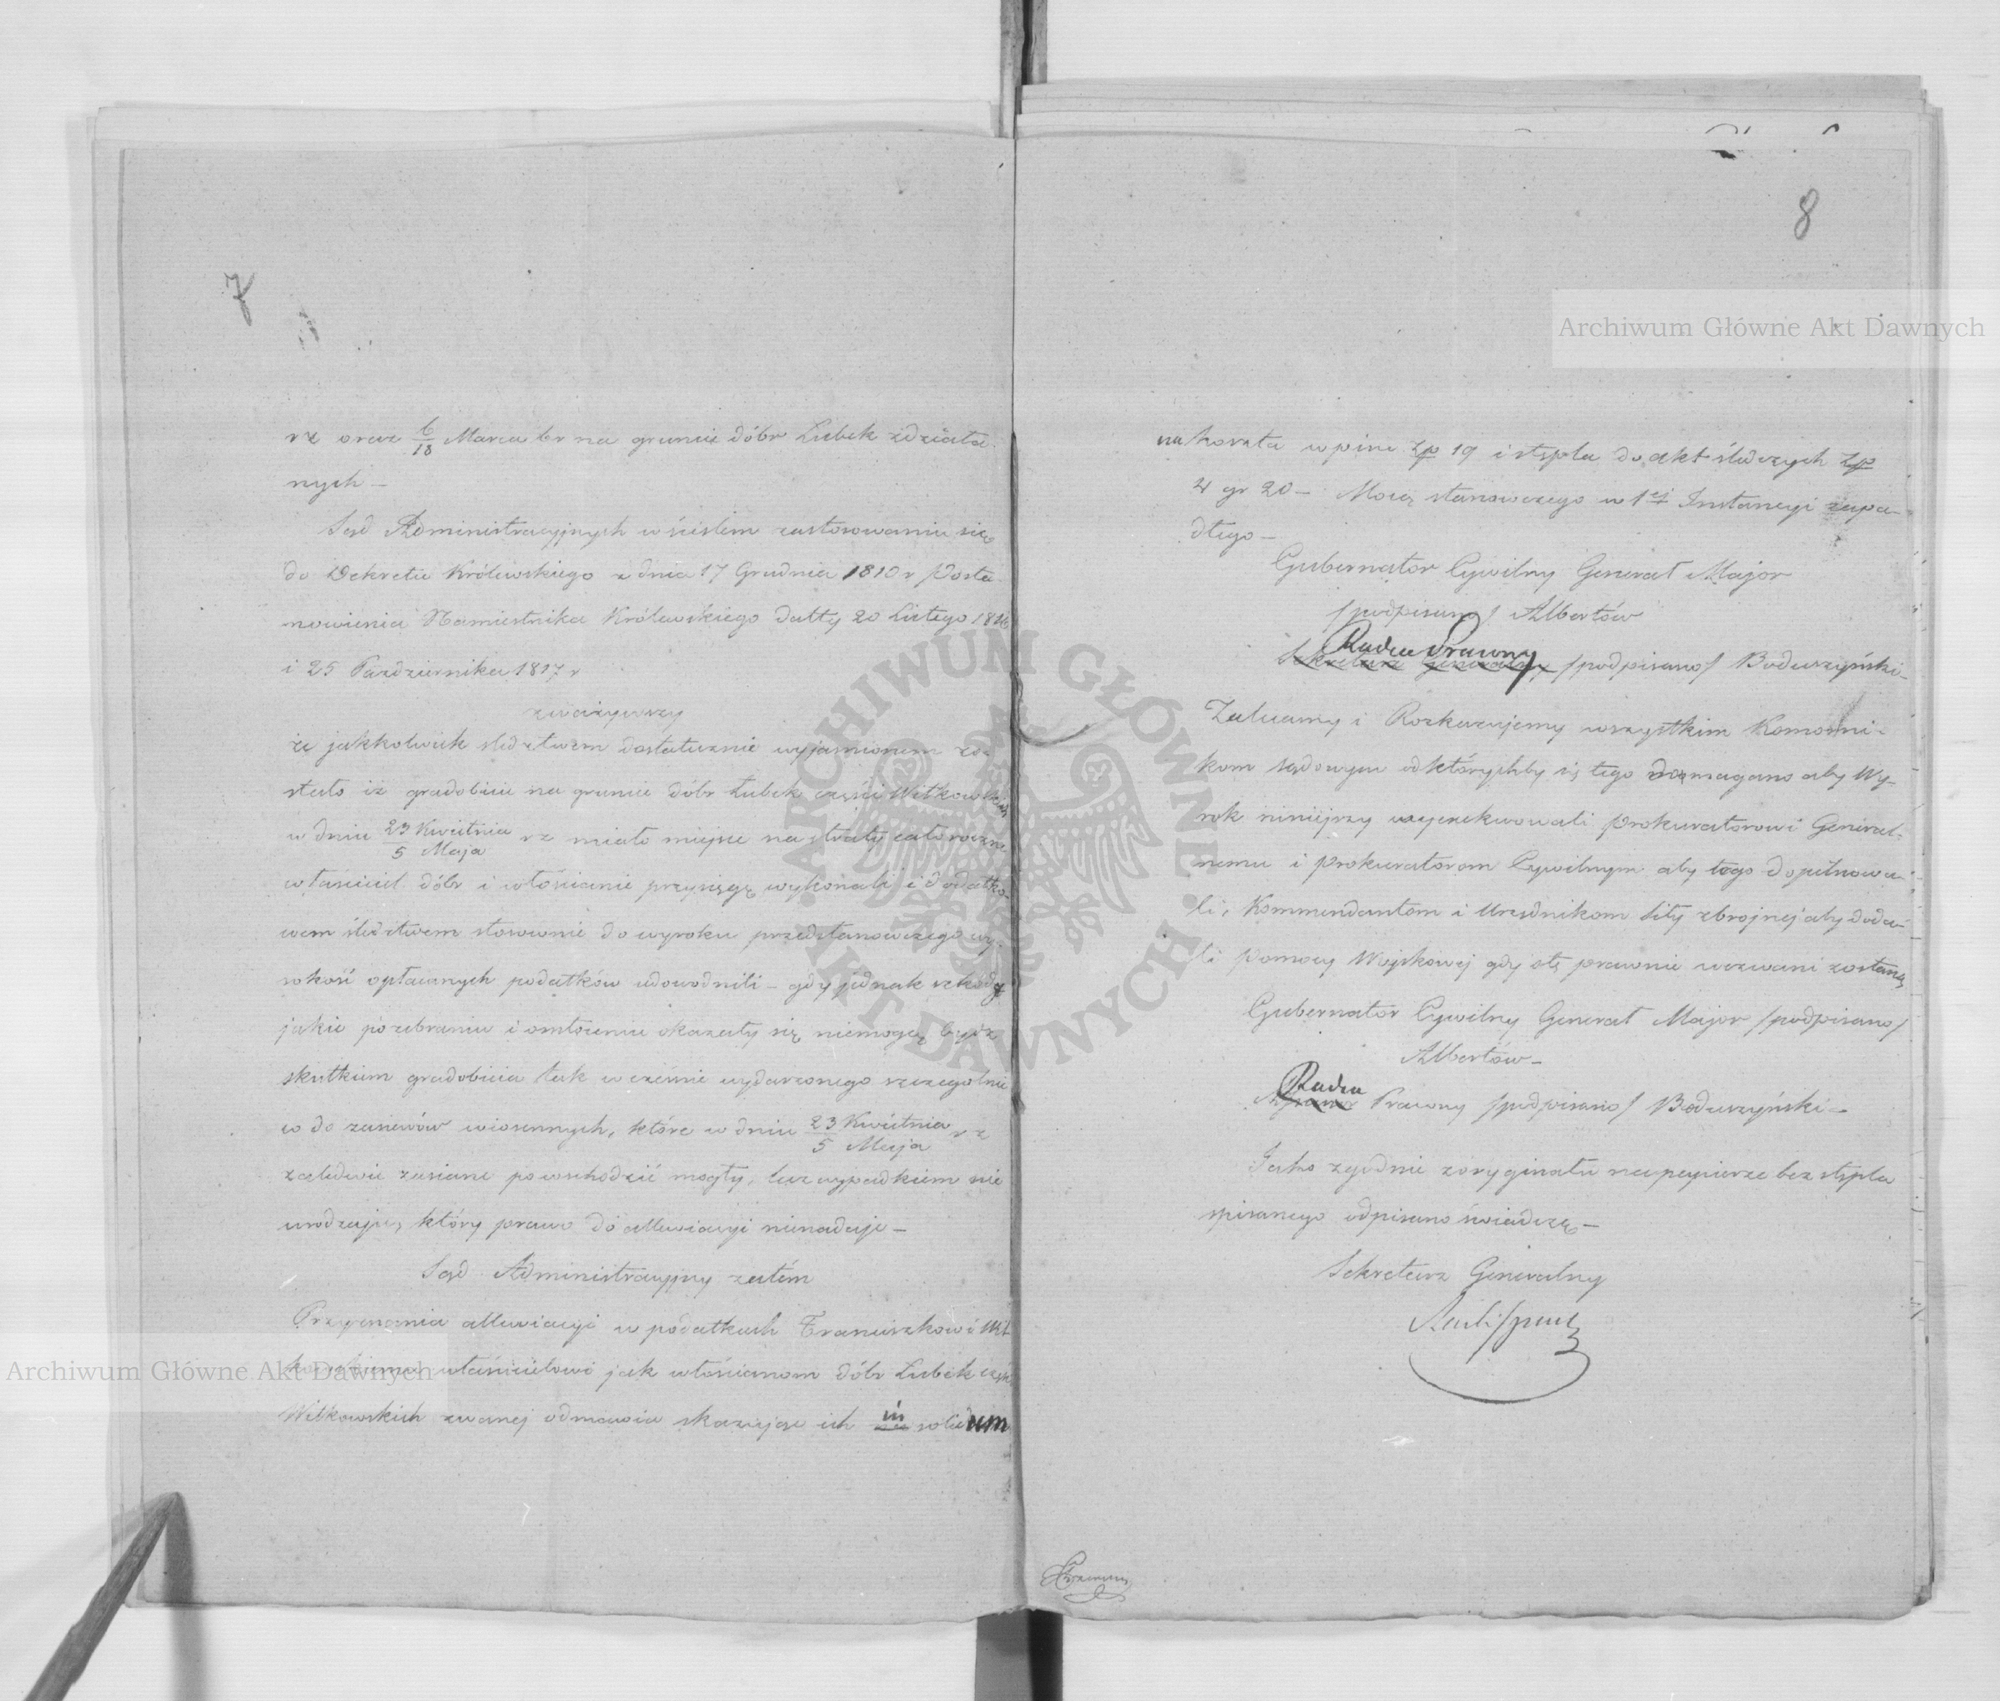 7
rz oraz 6/18 Marca br na gruncie dóbr Lubek zdziała-
nych –
Sąd Administracyjnych w ścisłem zastosowaniu się
do Dekretu Królewskiego z dnia 17 Grudnia 1810 r Posta-
nowienia Namiestnika Królewskiego datty 20 Lutego 1816
i 25 Października 1817 r
zważywszy
że jakkolwiek śledztwem dostatecznie wyjaśnionem zo-
stało iż gradobicie na gruncie dóbr Lubek części Witkowskich
w dniu 23 Kwietnia / 5 Maja rz miało miejsce na straty całoroczne
właściciel dóbr i włościanie przysięgę wykonali i dodatko-
wem śledztwem stosownie do wyroku przedstanowczego wy-
sokość opłacanych podatków udowodnili – gdy jednak szkody
jakie po zebraniu i omłóceniu okazały się niemogą bydź
skutkiem gradobicia tak wcześnie wydarzonego szczególnie
co do zasiewów wiosennych, które w dniu 23 Kwietnia / 5 Maja rz
zaledwie zasiane powschodzić mogły, lecz wypadkiem nie
urodzaju, który prawo do alleviacyi nienadaje –
Sąd Administracyjny zatém
Przyznania alleviacyi w podatkach Franciszkowi Wit-
właścicielowi jak włościanom dóbr Lubek części
Witkowskich zwanej odmawia skazując ich in solidum
8
na koszta wpisu Zp 19 i stępla do akt śledczych Zp
4 gr 20 – Mocą stanowczego w 1ej Instancyi zapa-
dłego –
Gubernator Cywilny Generał Major
/podpisano/ Albertów
Radca Prawny
Sekretarz Generalny /podpisano/ Boduszyński –
Zalecamy i Rozkazujemy wszystkim Komorni-
kom sądowym od którychby się tego domagano aby Wy-
rok niniejszy wyexekwowali prokuratorowi General-
nemu i prokuratorom Cywilnym aby tego dopilnowa-
li, Kommendantom i Urzędnikom siły zbrojnej aby doda-
li pomocy Wojskowej gdy o tę prawnie wezwani zostaną
Gubernator Cywilny Generał Major /podpisano/
Albertów –
Radca
Prawny /podpisano/ Boduszyński –
Jako zgodnie z oryginału na papierze bez stępla
spisanego odpisano świadczę –
Sekretarz Generalny
Archiwum Główne Akt Dawnych
Archiwum Główne Akt Dawnych
· ARCHIWUM GŁÓWNE · AKT DAWNYCH